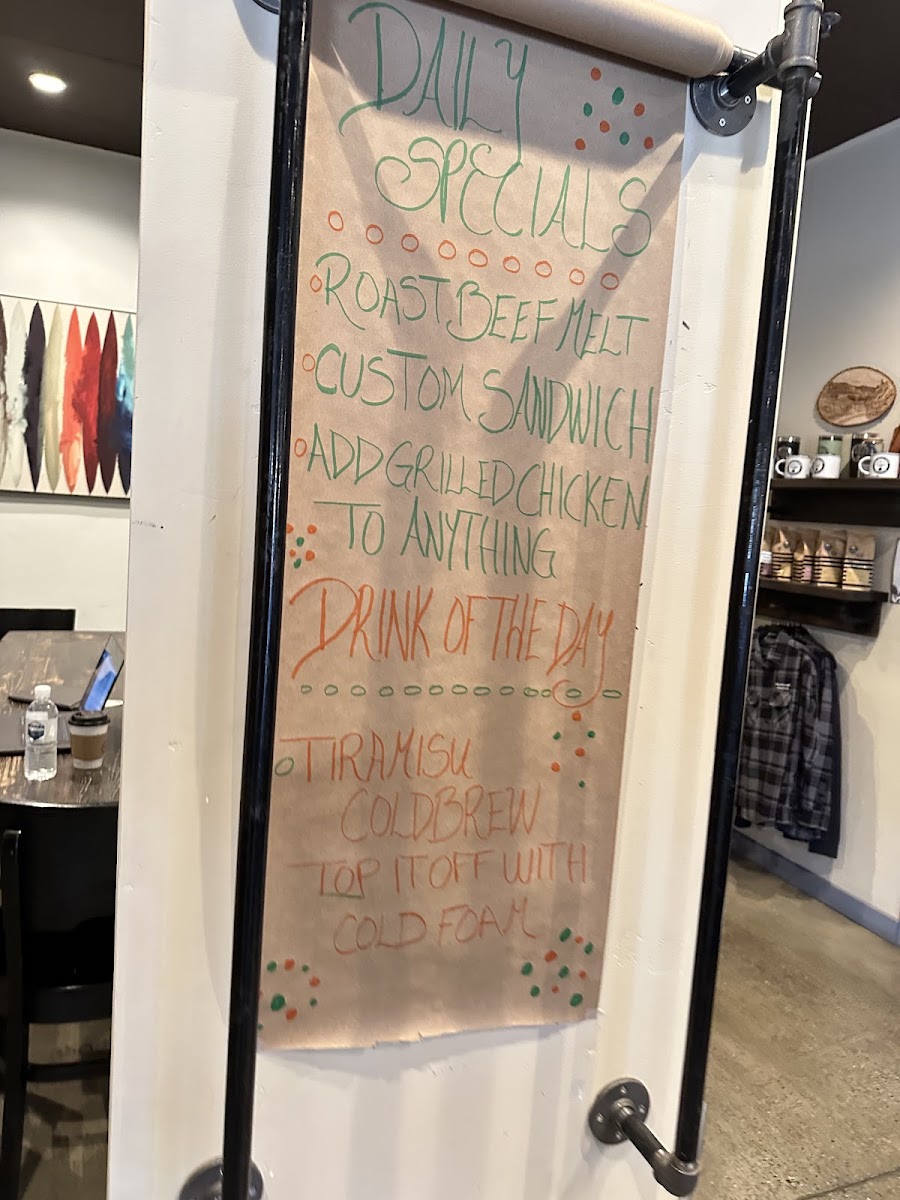 DAILY
SPECIALS
ROAST BEEF MELT
CUSTOM SANDWICH
ADD GRILLED CHICKEN
TO ANYTHING
DRINK OF THE DAY
TIRAMISU
COLDBREW
TOP IT OFF WITH
COLD FOAM